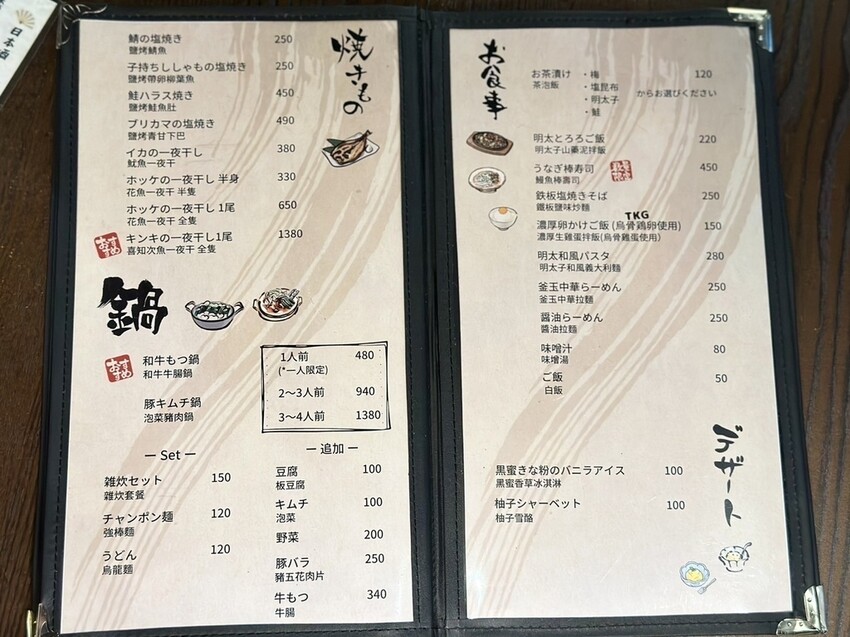 日本酒
焼きもの
鯖の塩焼き 250
鹽烤鯖魚
子持ちししゃもの塩焼き 250
鹽烤帶卵柳葉魚
鮭ハラス焼き 450
鹽烤鮭魚肚
ブリカマの塩焼き 490
鹽烤青甘下巴
イカの一夜干し 380
魷魚一夜干
ホッケの一夜干し 半身 330
花魚一夜干 半隻
ホッケの一夜干し 1尾 650
花魚一夜干 全隻
おすすめ
キンキの一夜干し1尾 1380
喜知次魚一夜干 全隻
鍋
おすすめ
和牛もつ鍋
和牛牛腸鍋
豚キムチ鍋
泡菜豬肉鍋
1人前 480
(*一人限定)
2〜3人前 940
3〜4人前 1380
ー Set ー
雑炊セット 150
雜炊套餐
チャンポン麺 120
強棒麵
うどん 120
烏龍麵
ー 追加 ー
豆腐 100
板豆腐
キムチ 100
泡菜
野菜 200
豚バラ 250
豬五花肉片
牛もつ 340
牛腸
お食事
お茶漬け ・梅 120
茶泡飯 ・塩昆布 からお選びください
・明太子
・鮭
明太とろろご飯 220
明太子山藥泥拌飯
うなぎ棒寿司 450
鰻魚棒壽司
鉄板塩焼きそば 250
鐵板鹽味炒麵
TKG
濃厚卵かけご飯 (烏骨鶏卵使用) 150
濃厚生雞蛋拌飯(烏骨雞蛋使用)
明太和風パスタ 280
明太子和風義大利麵
釜玉中華らーめん 250
釜玉中華拉麵
醤油らーめん 250
醬油拉麵
味噌汁 80
味噌湯
ご飯 50
白飯
デザート
黒蜜きな粉のバニラアイス 100
黑蜜香草冰淇淋
柚子シャーベット 100
柚子雪酪